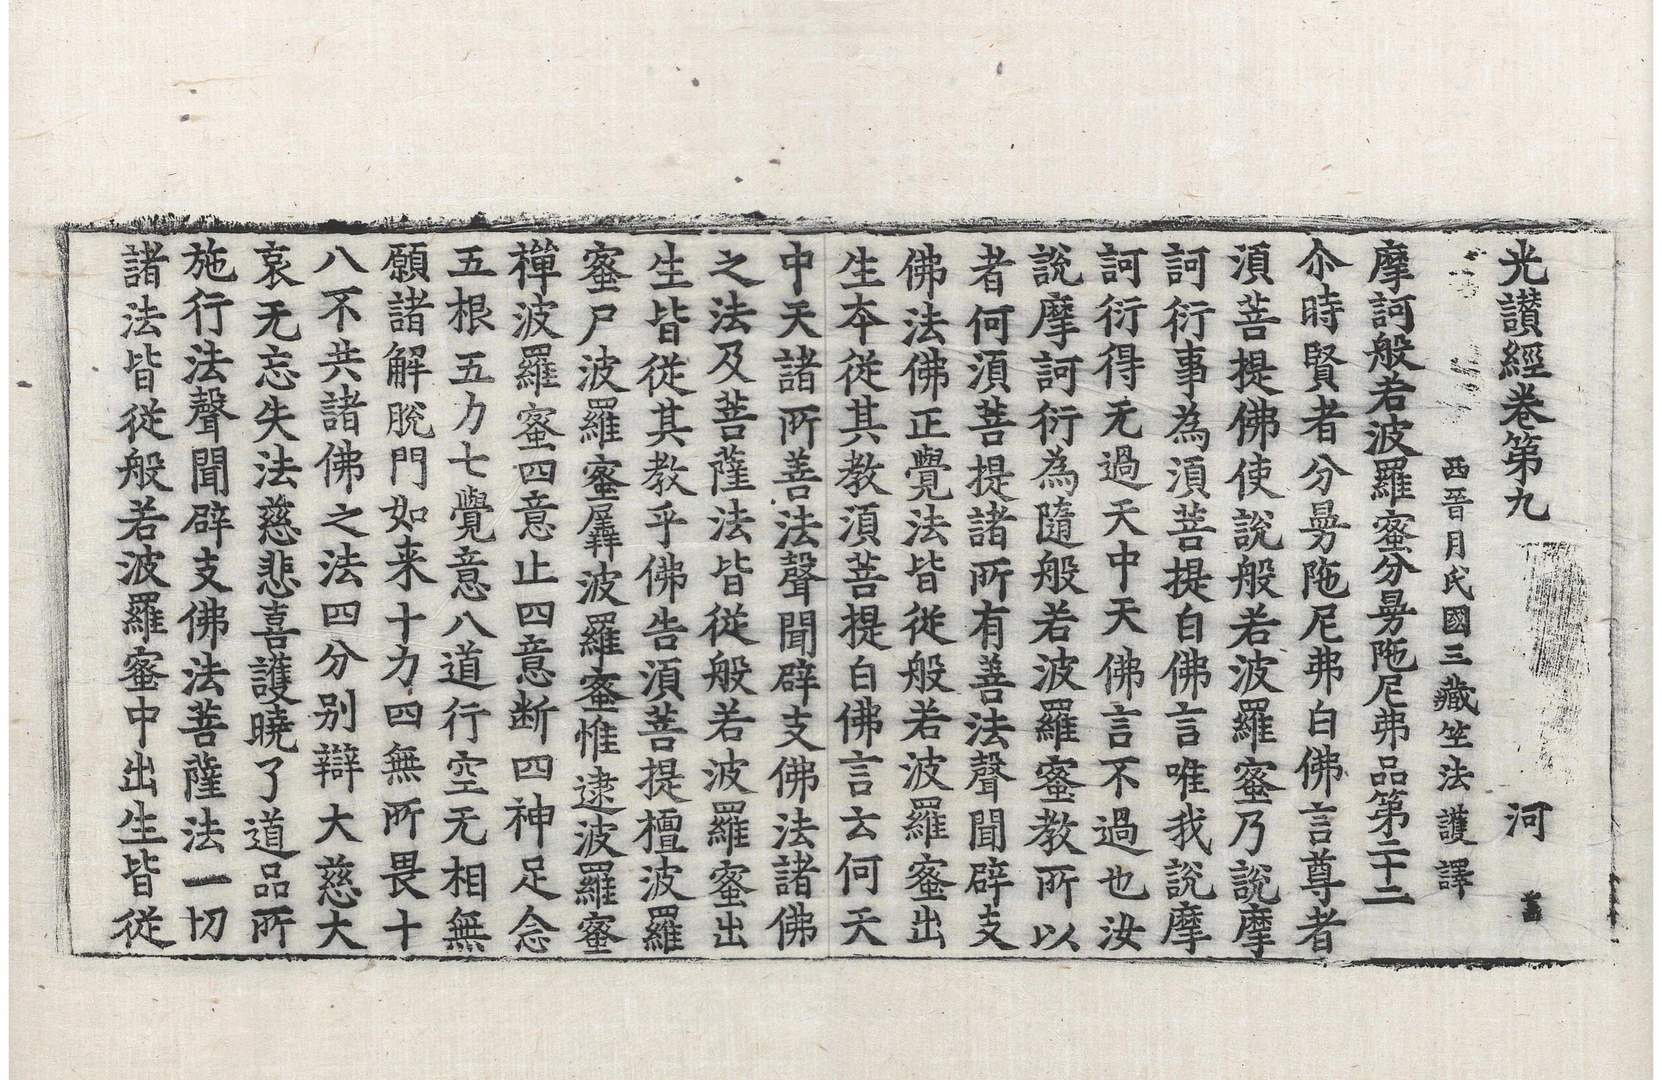 光讃經卷第九 河
西晉月氏國三藏竺法護譯
摩訶般若波羅蜜分曼陁尼弗品第二十二
尒時賢者分曼陁尼弗白佛言尊者
湏菩提佛使說般若波羅蜜乃說摩
訶衍事為湏菩提白佛言唯我說摩
訶衍得无過天中天佛言不過也汝
說摩訶衍為隨般若波羅蜜教所以
者何湏菩提諸所有善法聲聞辟支
佛法佛正覺法皆從般若波羅蜜出
生本從其教湏菩提白佛言云何天
中天諸所善法聲聞辟支佛法諸佛
之法及菩薩法皆從般若波羅蜜出
生皆從其教乎佛告湏菩提檀波羅
蜜尸波羅蜜羼波羅蜜惟逮波羅蜜
禪波羅蜜四意止四意断四神足念
五根五力七覺意八道行空无相無
願諸解脫門如来十力四無所畏十
八不共諸佛之法四分別辯大慈大
哀无忘失法慈悲喜護曉了道品所
施行法聲聞辟支佛法菩薩法一切
諸法皆從般若波羅蜜中出生皆從